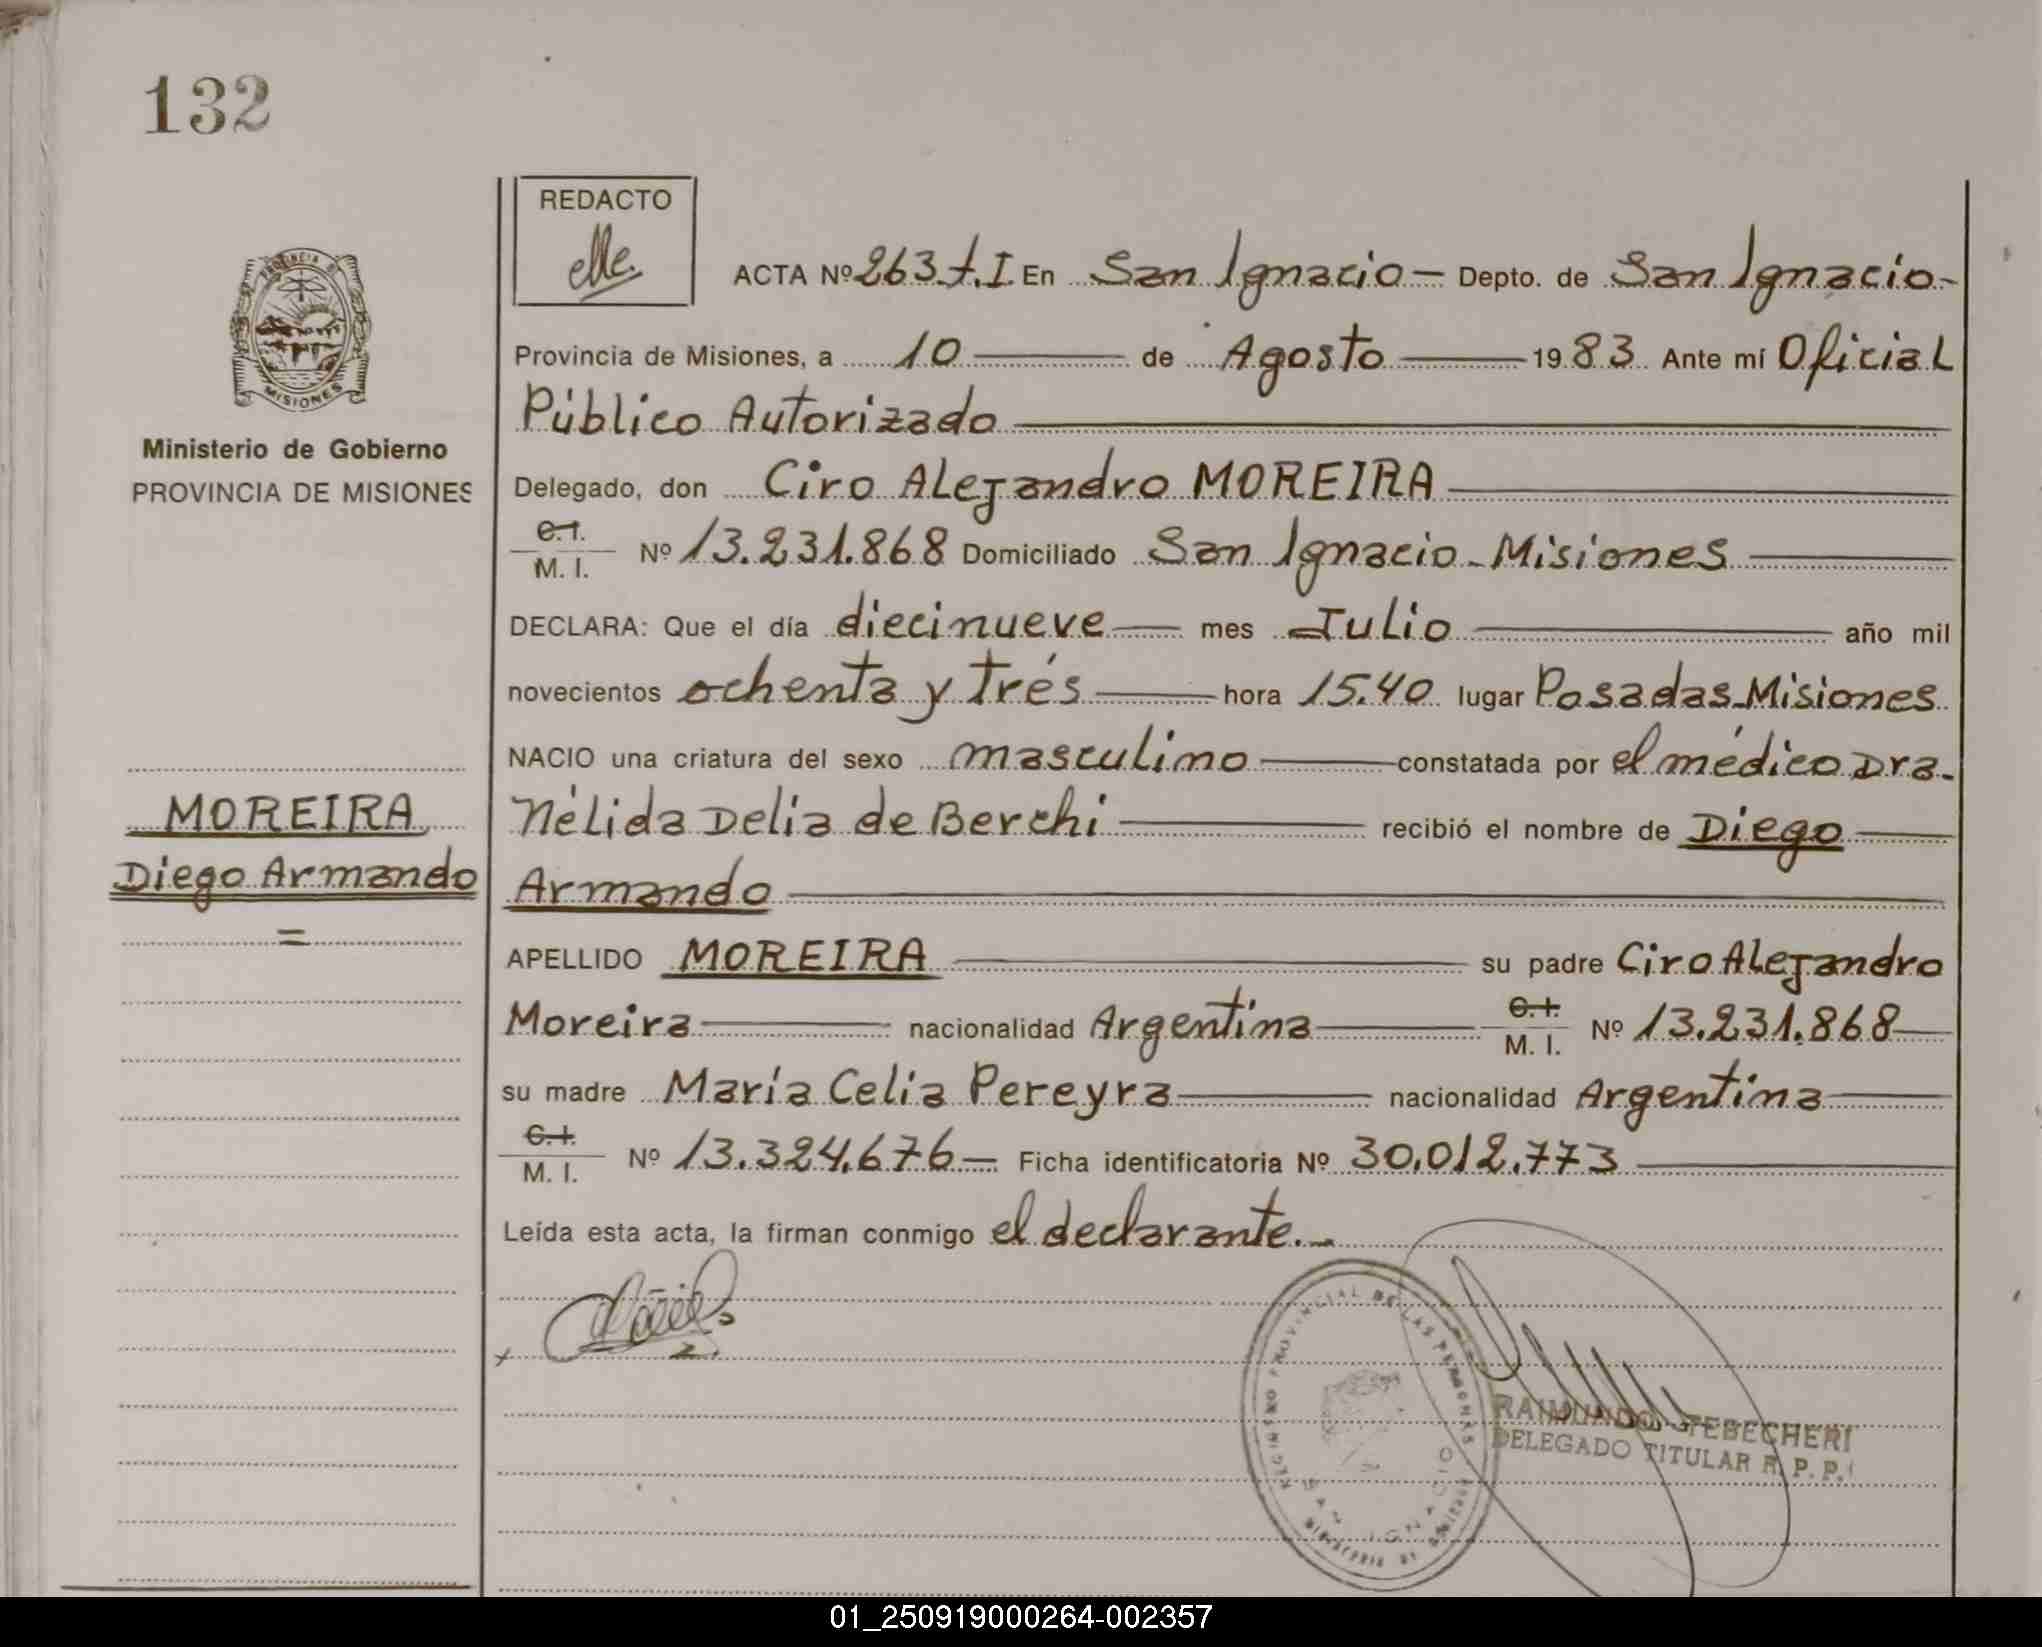 132
REDACTO
ACTA Nº 263 t. I En San Ignacio - Depto. de San Ignacio -
Provincia de Misiones, a 10 de Agosto 1983 Ante mí Oficial
Público Autorizado
Delegado, don Ciro Alejandro MOREIRA
C.I.
M. I. Nº 13.231.868 Domiciliado San Ignacio - Misiones
DECLARA: Que el día diecinueve mes Julio año mil
novecientos ochenta y trés hora 15.40 lugar Posadas-Misiones
NACIO una criatura del sexo masculino constatada por el médico Dra.
Nélida Delia de Berchi recibió el nombre de Diego
Armando
APELLIDO MOREIRA su padre Ciro Alejandro
Moreira nacionalidad Argentina C.I. M. I. Nº 13.231.868
su madre María Celia Pereyra nacionalidad Argentina
C.I.
M. I. Nº 13.324.676 - Ficha identificatoria Nº 30.012.773
Leída esta acta, la firman conmigo el declarante.-
PROVINCIA DE
MISIONES
Ministerio de Gobierno
PROVINCIA DE MISIONES
MOREIRA
Diego Armando
=
REGISTRO PROVINCIAL DE LAS PERSONAS
SAN IGNACIO
RAIMUNDO TEBECHERI
DELEGADO TITULAR R. P. P.
01_250919000264-002357